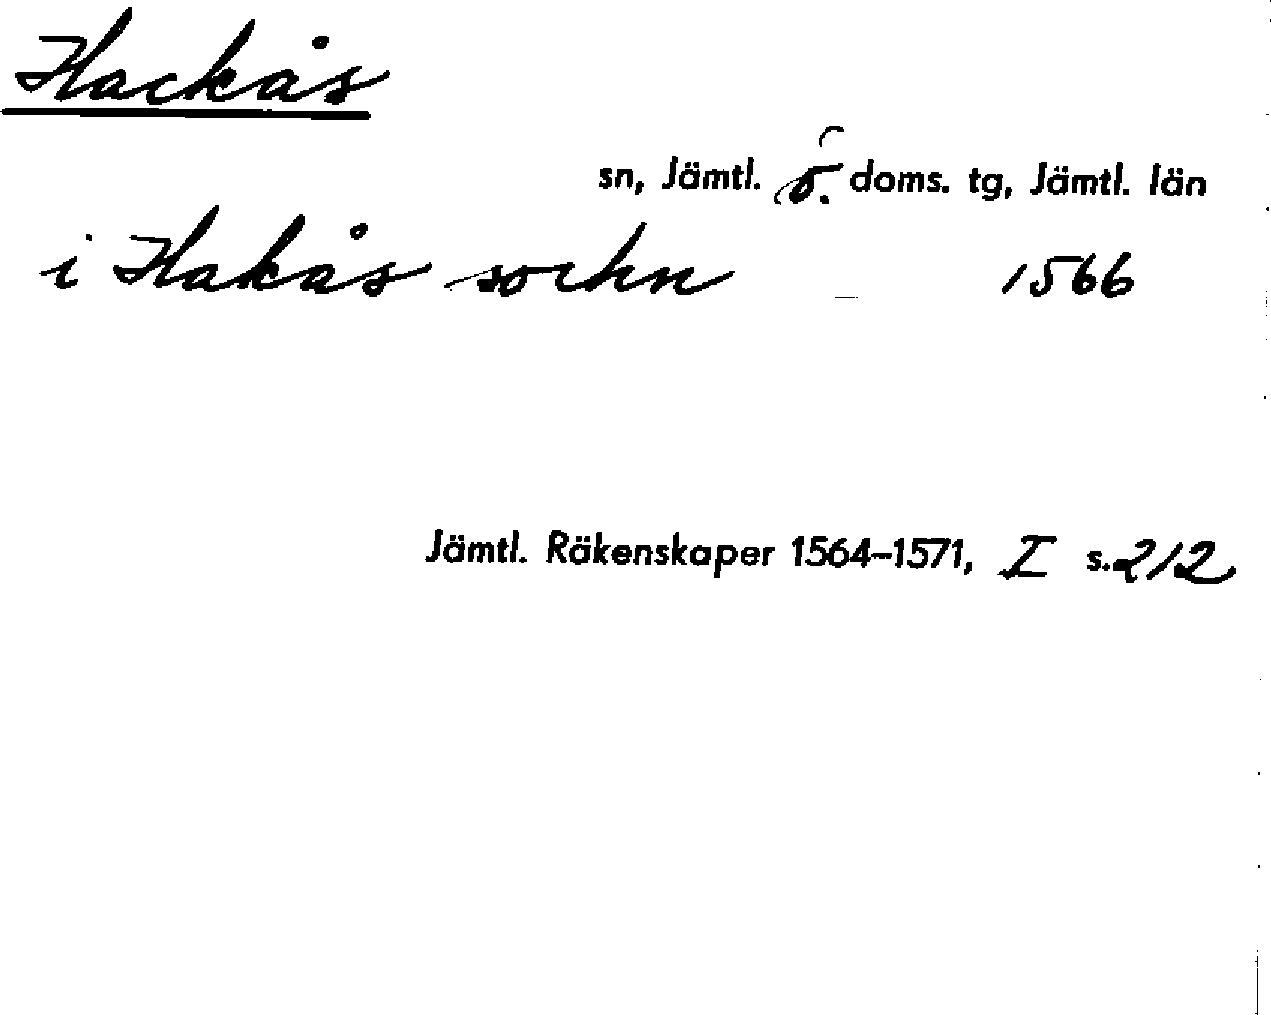 Hackås
sn, Jämtl. ö. doms. tg, Jämtl. län
i Hakås sockn 1566
Jämtl. Räkenskaper 1564–1571, I s. 212